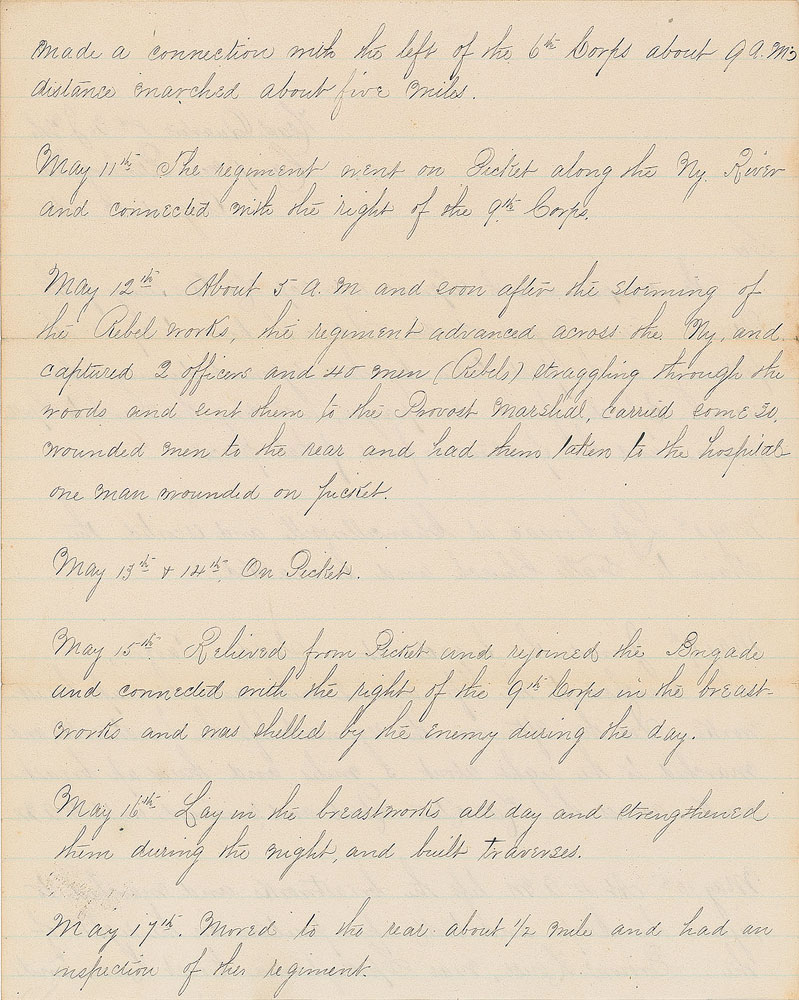 made a connection with the left of the 6th Corps about 9 A.M.
distance marched about five miles.
May 11th The regiment went on Picket along the Ny. River
and connected with the right of the 9th Corps.
May 12th. About 5 A.M and soon after the storming of
the Rebel works, the regiment advanced across the Ny, and
captured 2 officers and 40 men (Rebels) straggling through the
woods and sent them to the Provost Marshal, carried some 30,
wounded men to the rear and had them taken to the hospital
one man wounded on picket.
May 13th & 14th. On Picket.
May 15th Relieved from Picket and rejoined the Brigade
and connected with the right of the 9th Corps in the breast-
works and was shelled by the enemy during the day.
May 16th Lay in the breastworks all day and strengthened
them during the night, and built traverses.
May 17th. Moved to the rear about 1/2 mile and had an
inspection of the regiment.